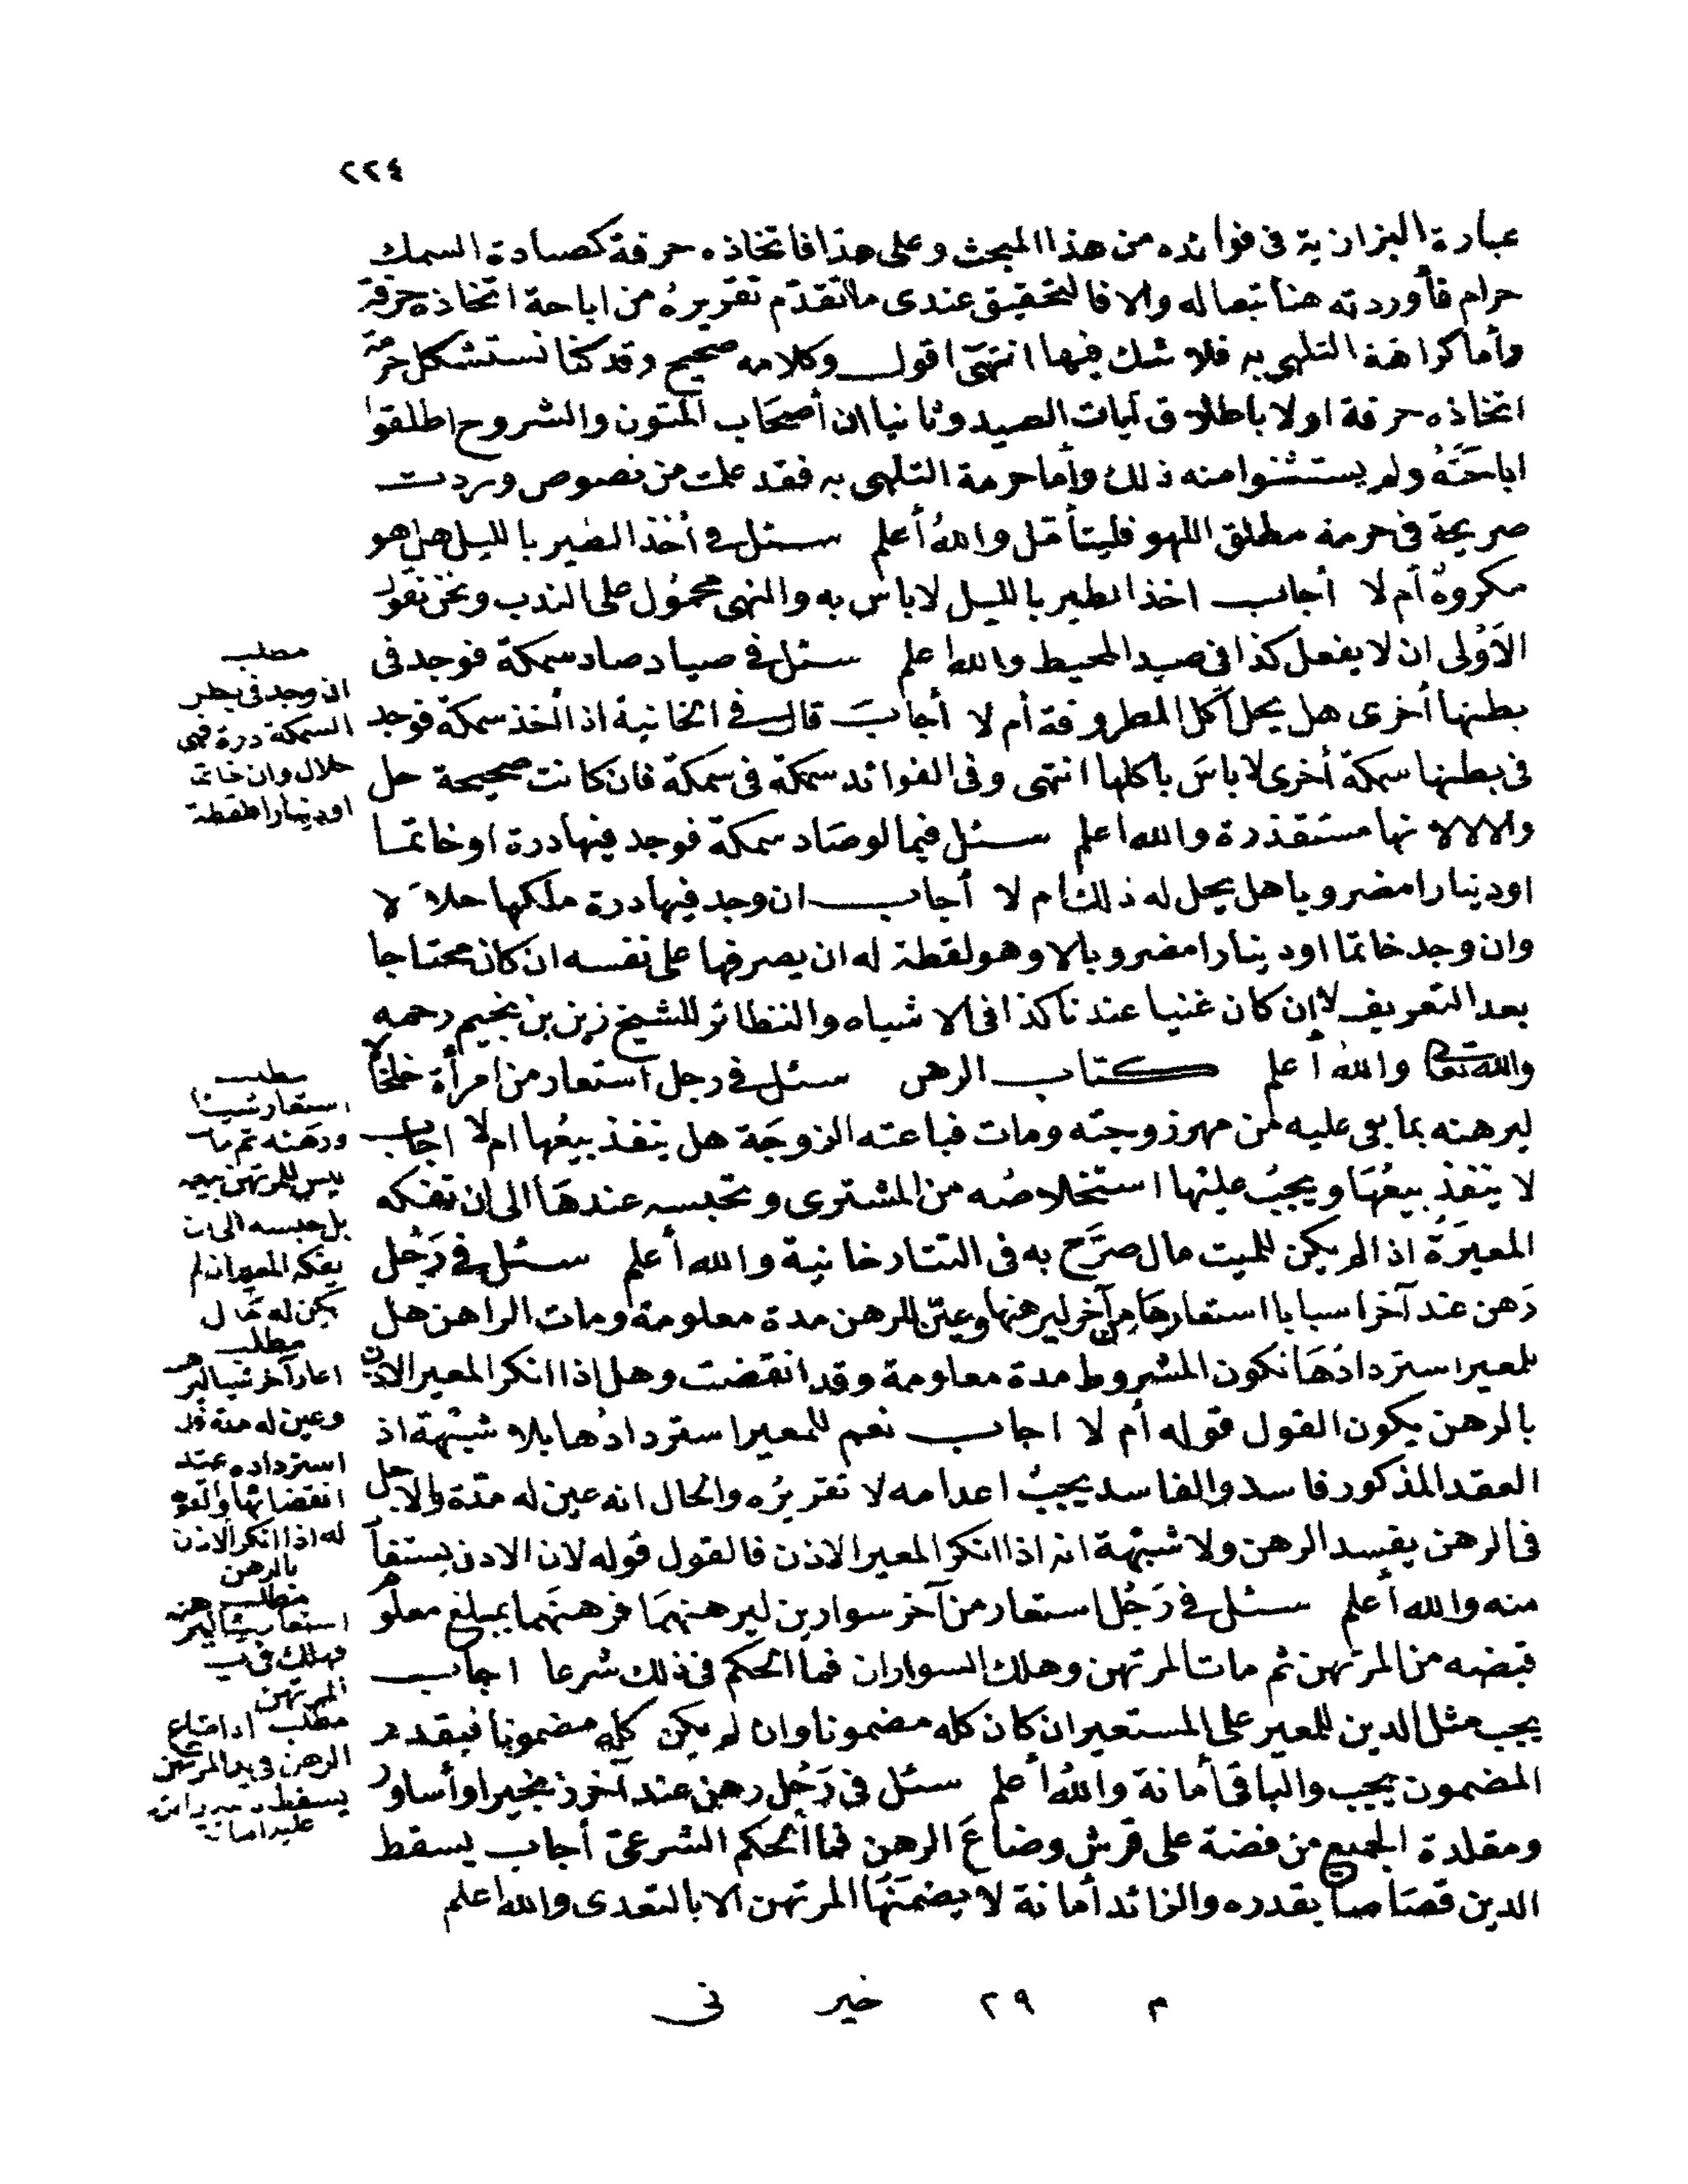 ٢٢٤
عبارة البزازية في فوائده من هذا المبحث وعلى هذا فاتخاذه حرفة كصيادة السمك
حرام فأوردته هنا تبعا له والا فالتحقيق عندى ما تقدّم تقريرهُ من اباحة اتخاذه حرفة
وأما كراهة التلهي به فلا شك فيها انتهى اقول وكلامه صحيح وقد كنا نستشكل حرمة
اتخاذه حرفة اولا باطلاق آيات الصيد وثانيا ان أصحَاب المتون والشروح اطلقوا
اباحَتَهُ ولم يستثنوا منه ذلك وأما حرمة التلهي به فقد علمت من نصوص وردت
صريحة في حرمة مطلق اللهو فليتأمّل واللهُ أعلم سئل في أخذ الطير بالليل هل هو
مكروهٌ أم لا أجاب اخذ الطير بالليل لا باس به والنهي محمُول على الندب ونحن نقول
الاَوْلى ان لا يفعل كذا في صيد المحيط والله اعلم سئل في صياد صاد سمكة فوجد في
بطنها أخرى هل يحل أكل المظروفة أم لا أجابَ قال في الخانية اذا أخذ سمكة فوجد
في بطنها سمكة أخرى لا باسَ باكلها انتهى وفى الفوائد سمكة في سمكة فان كانت صحيحة حل
والا لا لانها مستقذرة والله اعلم سئل فيما لو صَاد سمكة فوجد فيها درة او خاتما
او دينارا مضروبا هل يحل له ذلك ام لا أجاب ان وجد فيها درة ملكها حلالا
وان وجد خاتما او دينارا مضروبا لا وهو لقطة له ان يصرفها على نفسه ان كان محتاجا
بعد التعريف لا إن كان غنيا عندنا كذا في الاشباه والنظائر للشيخ زين بن نجيم رحمه
الله تعالى واللهُ أعلم كتاب الرهن سئل في رجل استعار من امرأة خلخالا
ليرهنه بما بقي عليه من مهر زوجته ومات فباعته الزوجَة هل ينفذ بيعُها ام لا اجاب
لا ينفذ بيعُهَا ويجبُ عليْها استخلاصُه من المشترى وتحبسه عندهَا الى ان تفكه
المعيرَةُ اذا لم يكن للميت مال صرَّح به في التتارخانية والله أعلم سئل في رَجُل
رَهن عند آخر اسبابا استعارهَا من آخر ليرهنها وعيّن للرهن مدة معلومة ومات الراهن هل
للمعير استردادُهَا لكون المشروط مدة معلومة وقد انقضت وهل اذا انكر المعير الاذن
بالرهن يكون القول قوله أم لا اجاب نعم للمعير استردادُها بلا شبْهة اذ
العقد المذكور فاسد والفاسد يجبُ اعدامه لا تقريرُه والحال انه عين له مدّة والاجل
في الرهن يفسد الرهن ولا شبْهة انه اذا انكر المعير الاذن فالقول قوله لان الاذن يستفاد
منه والله أعلم سئل في رَجُل استعار من آخر سوارين ليرهنهمَا فرهنَهما بمبلغ معلوم
قبضه من المرتهن ثم مات المرتهن وهلك السواران فما الحكم في ذلك شرعا اجاب
يجب مثل الدين للمعير على المستعير ان كان كله مضمونا وان لم يكن كله مضمونا فبقدر
المضمون يجب والباقى أمانة واللهُ أعلم سئل في رَجُل رهن عند آخر زنجيرا وأساور
ومقلدة الجميع من فضة على قرش وضاعَ الرهن فما الحكم الشرعىّ أجاب يسقط
الدين قصَاصا بقدره والزائد أمانة لا يضمَنُهَا المرتهن الا بالتعدى والله اعلم
مطلب
ان وجد في بطن
السمكة درة فهي
حلال وان خاتما
او دينارا فلقطة
مطلب
استعار شيئا
ورهنه ثم مات
ليس للمرتهن بيعه
بل حبسه الى ان
يفكه المعير ان لم
يكن له مَال
مطلب
اعار آخر شيئا ليرهنه
وعين له مدة فله
استرداده عند
انقضائها والقول
له اذا انكر الاذن
بالرهن
مطلب
استعار شيئا ليرهنه
فهلك في يد
المرتهن
مطلب اذا ضاع
الرهن في يد المرتهن
يسقط
عليه امانة
م ٢٩ خير نى